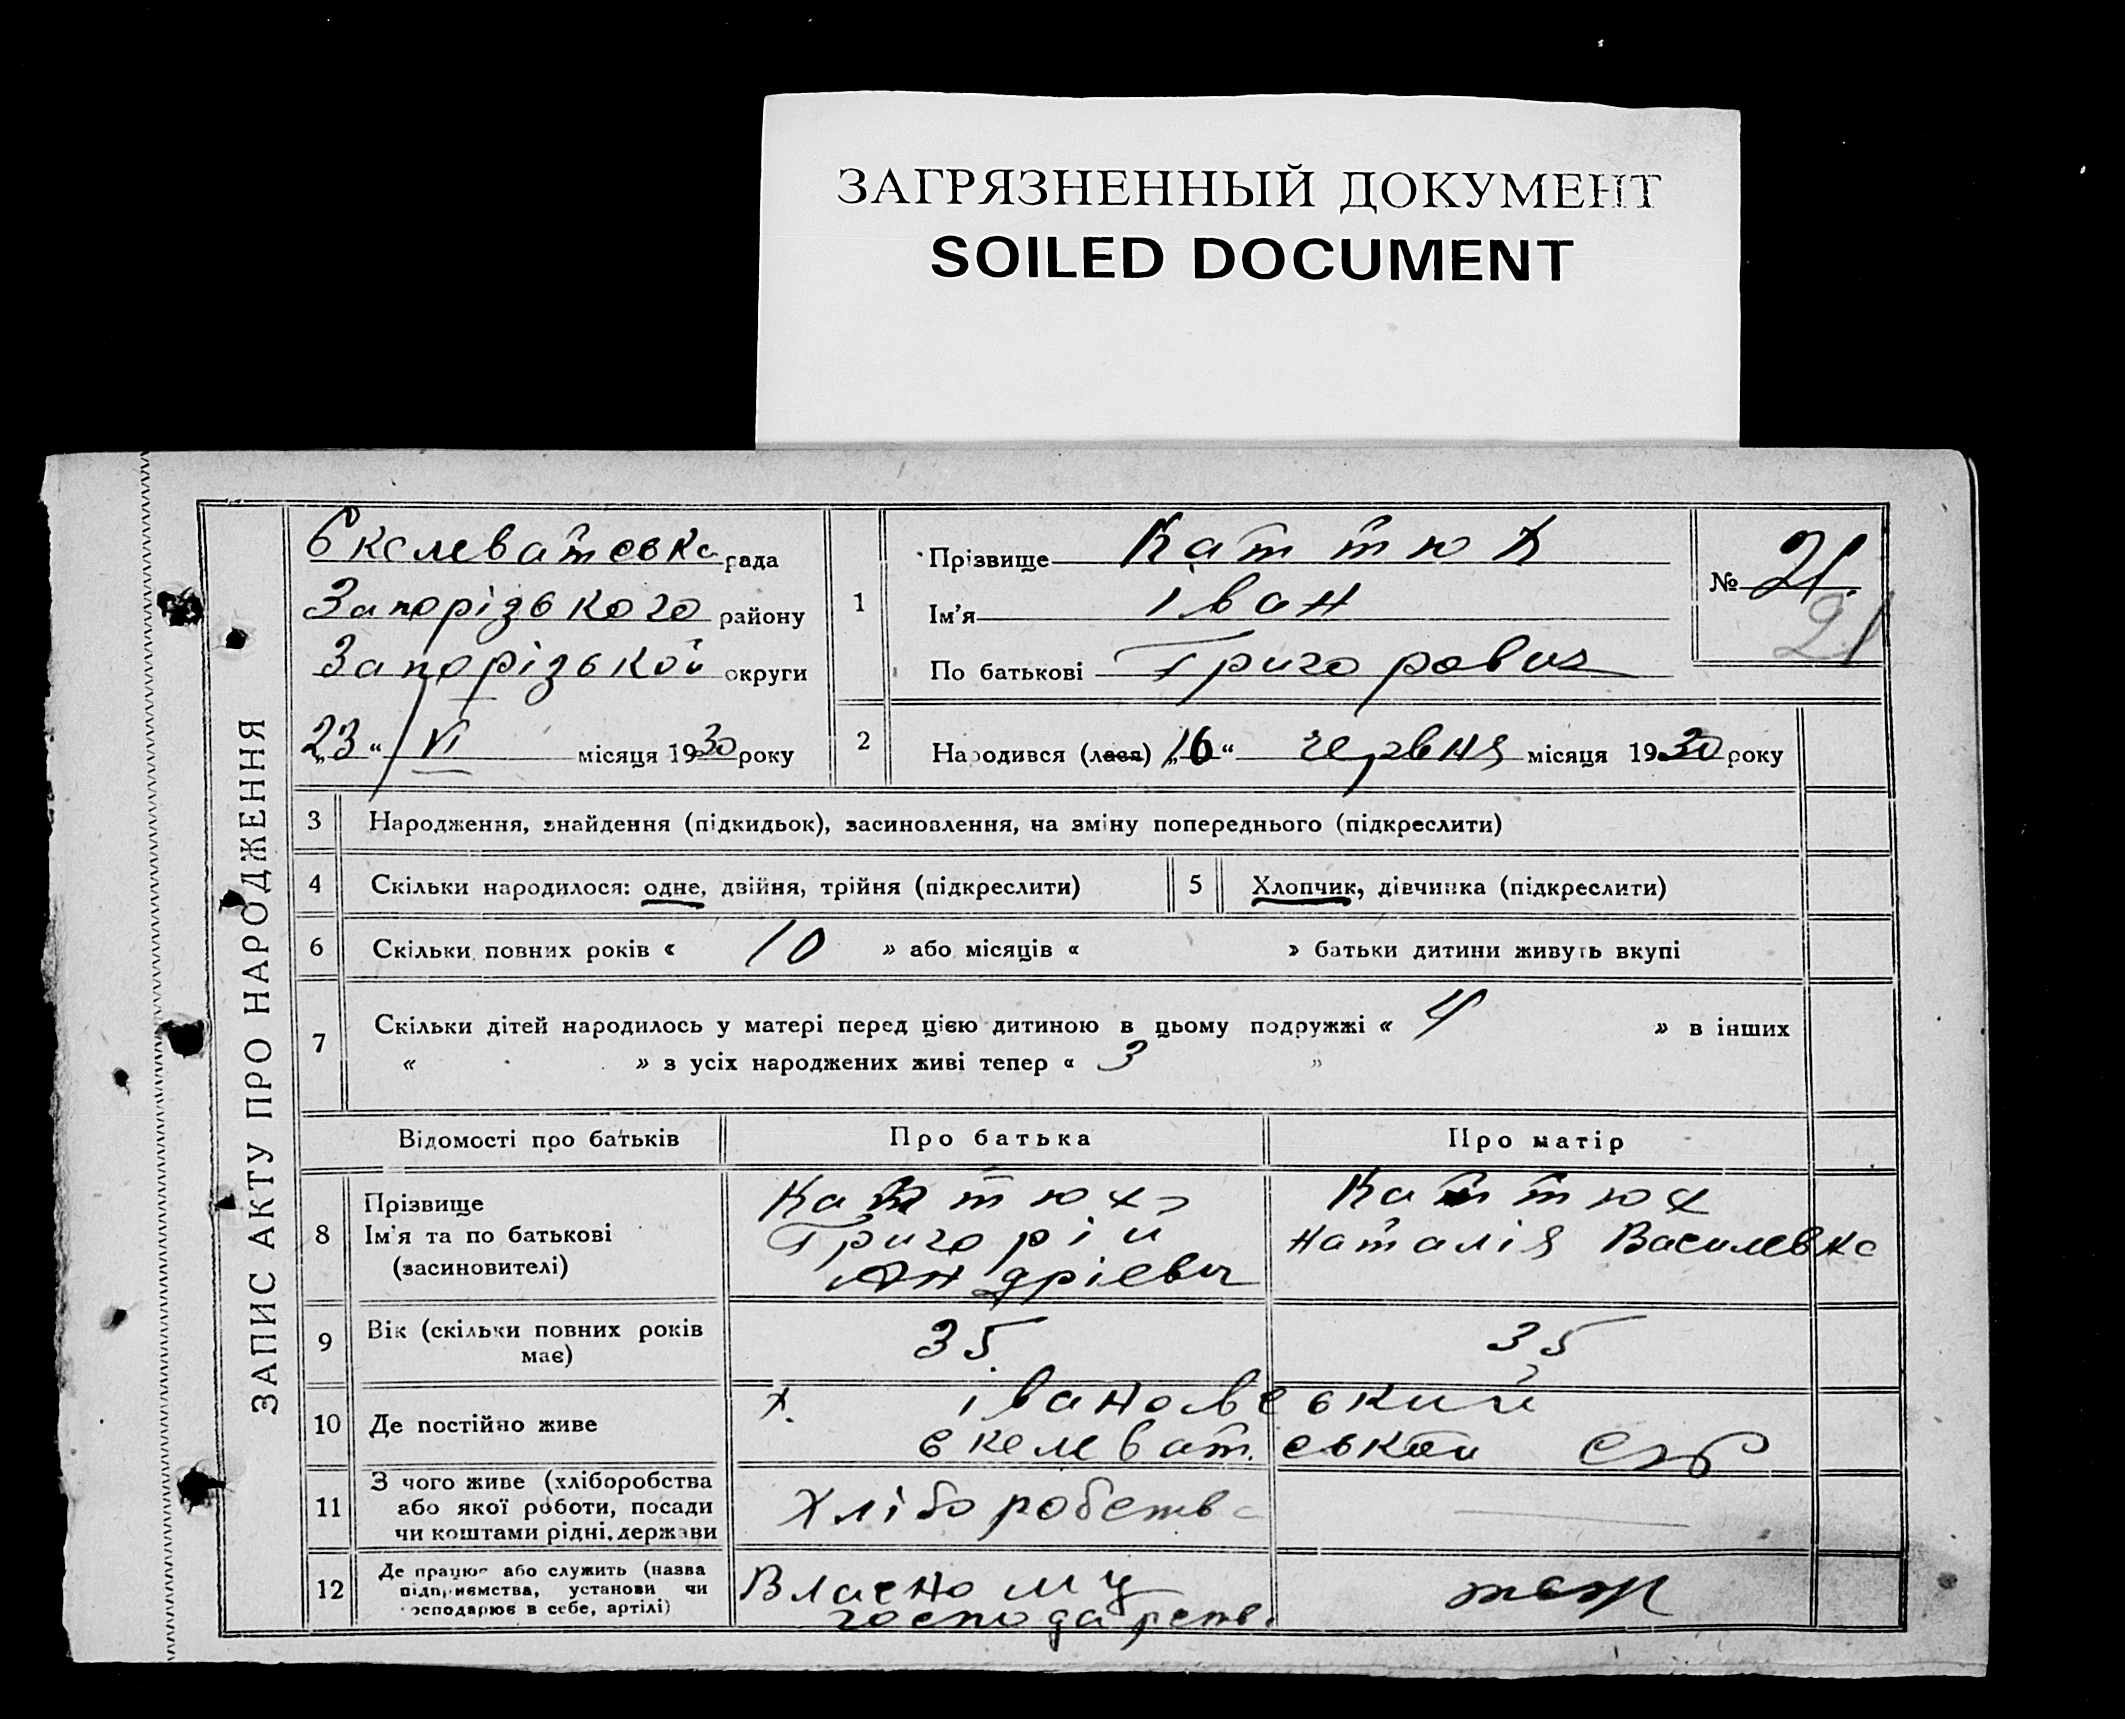 ЗАГРЯЗНЕННЫЙ ДОКУМЕНТ
SOILED DOCUMENT
ЗАПИС АКТУ ПРО НАРОДЖЕННЯ
Скелеватська рада
Запорізького району
Запорізької округи
„23“ VI місяця 1930 року
1 Прізвище Каттюх
Ім'я Іван
По батькові Григорович
№ 21.
21
2 Народився (лася) „16“ червня місяця 1930 року
3 Народження, знайдення (підкидьок), засиновлення, на зміну попереднього (підкреслити)
4 Скільки народилося: одне, двійня, трійня (підкреслити)
5 Хлопчик, дівчинка (підкреслити)
6 Скільки повних років « 10 » або місяців « » батьки дитини живуть вкупі
7 Скільки дітей народилось у матері перед цією дитиною в цьому подружжі « 4 » в інших
« » з усіх народжених живі тепер « 3 »
Відомості про батьків Про батька Про матір
8 Прізвище
Ім'я та по батькові
(засиновителі)
Каттюх
Григорій
Андрієвич
Каттюх
Наталія Василевна
9 Вік (скільки повних років
має)
35
35
10 Де постійно живе
х. Івановський
Скелеват. ської с/р
11 З чого живе (хліборобства
або якої роботи, посади
чи коштами рідні, держави
Хліборобства
12 Де працює або служить (назва
підприємства, установи чи
господарює в себе, артілі)
Власному
господарств.
теж